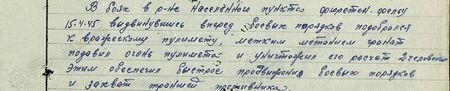 В боях в р-не населённого пункта
15.4.45 выдвинувшись вперед боевых порядков подобрался
к вражескому пулимету, метким метанием гранат
подавил огонь пулимета и уничтожил его расчет 2 человека
этим обеспечил быстрое продвижение боевых порядков
и захват траншеи противника.